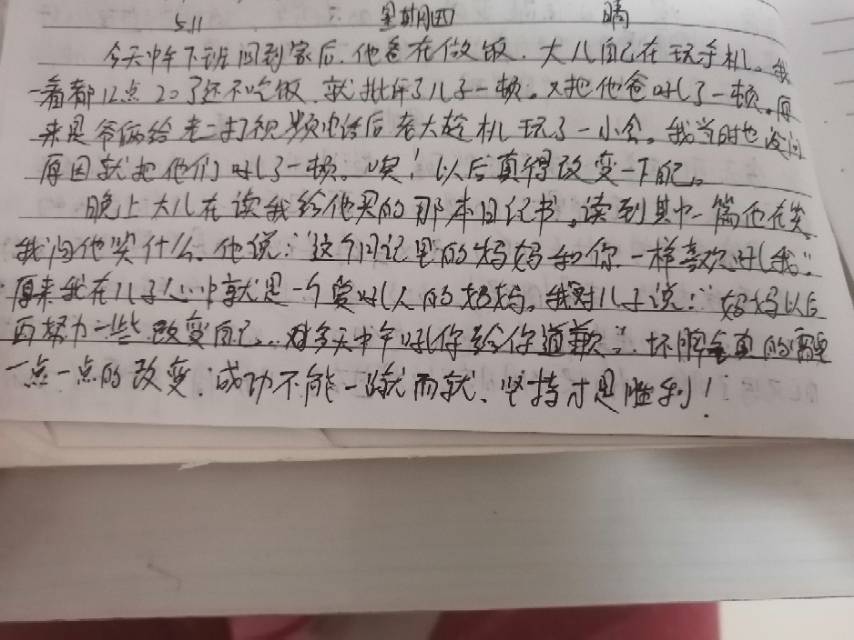 5.11 星期四 晴
今天中午下班回到家后,他爸在做饭,大儿自己在玩手机。我
一看都12点20了还不吃饭,就批评了儿子一顿。又把他爸吼了一顿。原
来是爷俩给老二打视频电话后老大趁机玩了一小会。我当时也没问
原因就把他们吼了一顿。唉!以后真得改变一下呢。
晚上大儿在读我给他买的那本日记书。读到其中一篇他在笑
我问他笑什么,他说:"这个日记里的妈妈和你一样喜欢吼我"
原来我在儿子心中就是一个爱吼人的妈妈。我对儿子说:"妈妈以后
再努力一些,改变自己...对今天中午吼你给你道歉"。坏脾气真的需要
一点一点的改变,成功不能一蹴而就、坚持才是胜利!